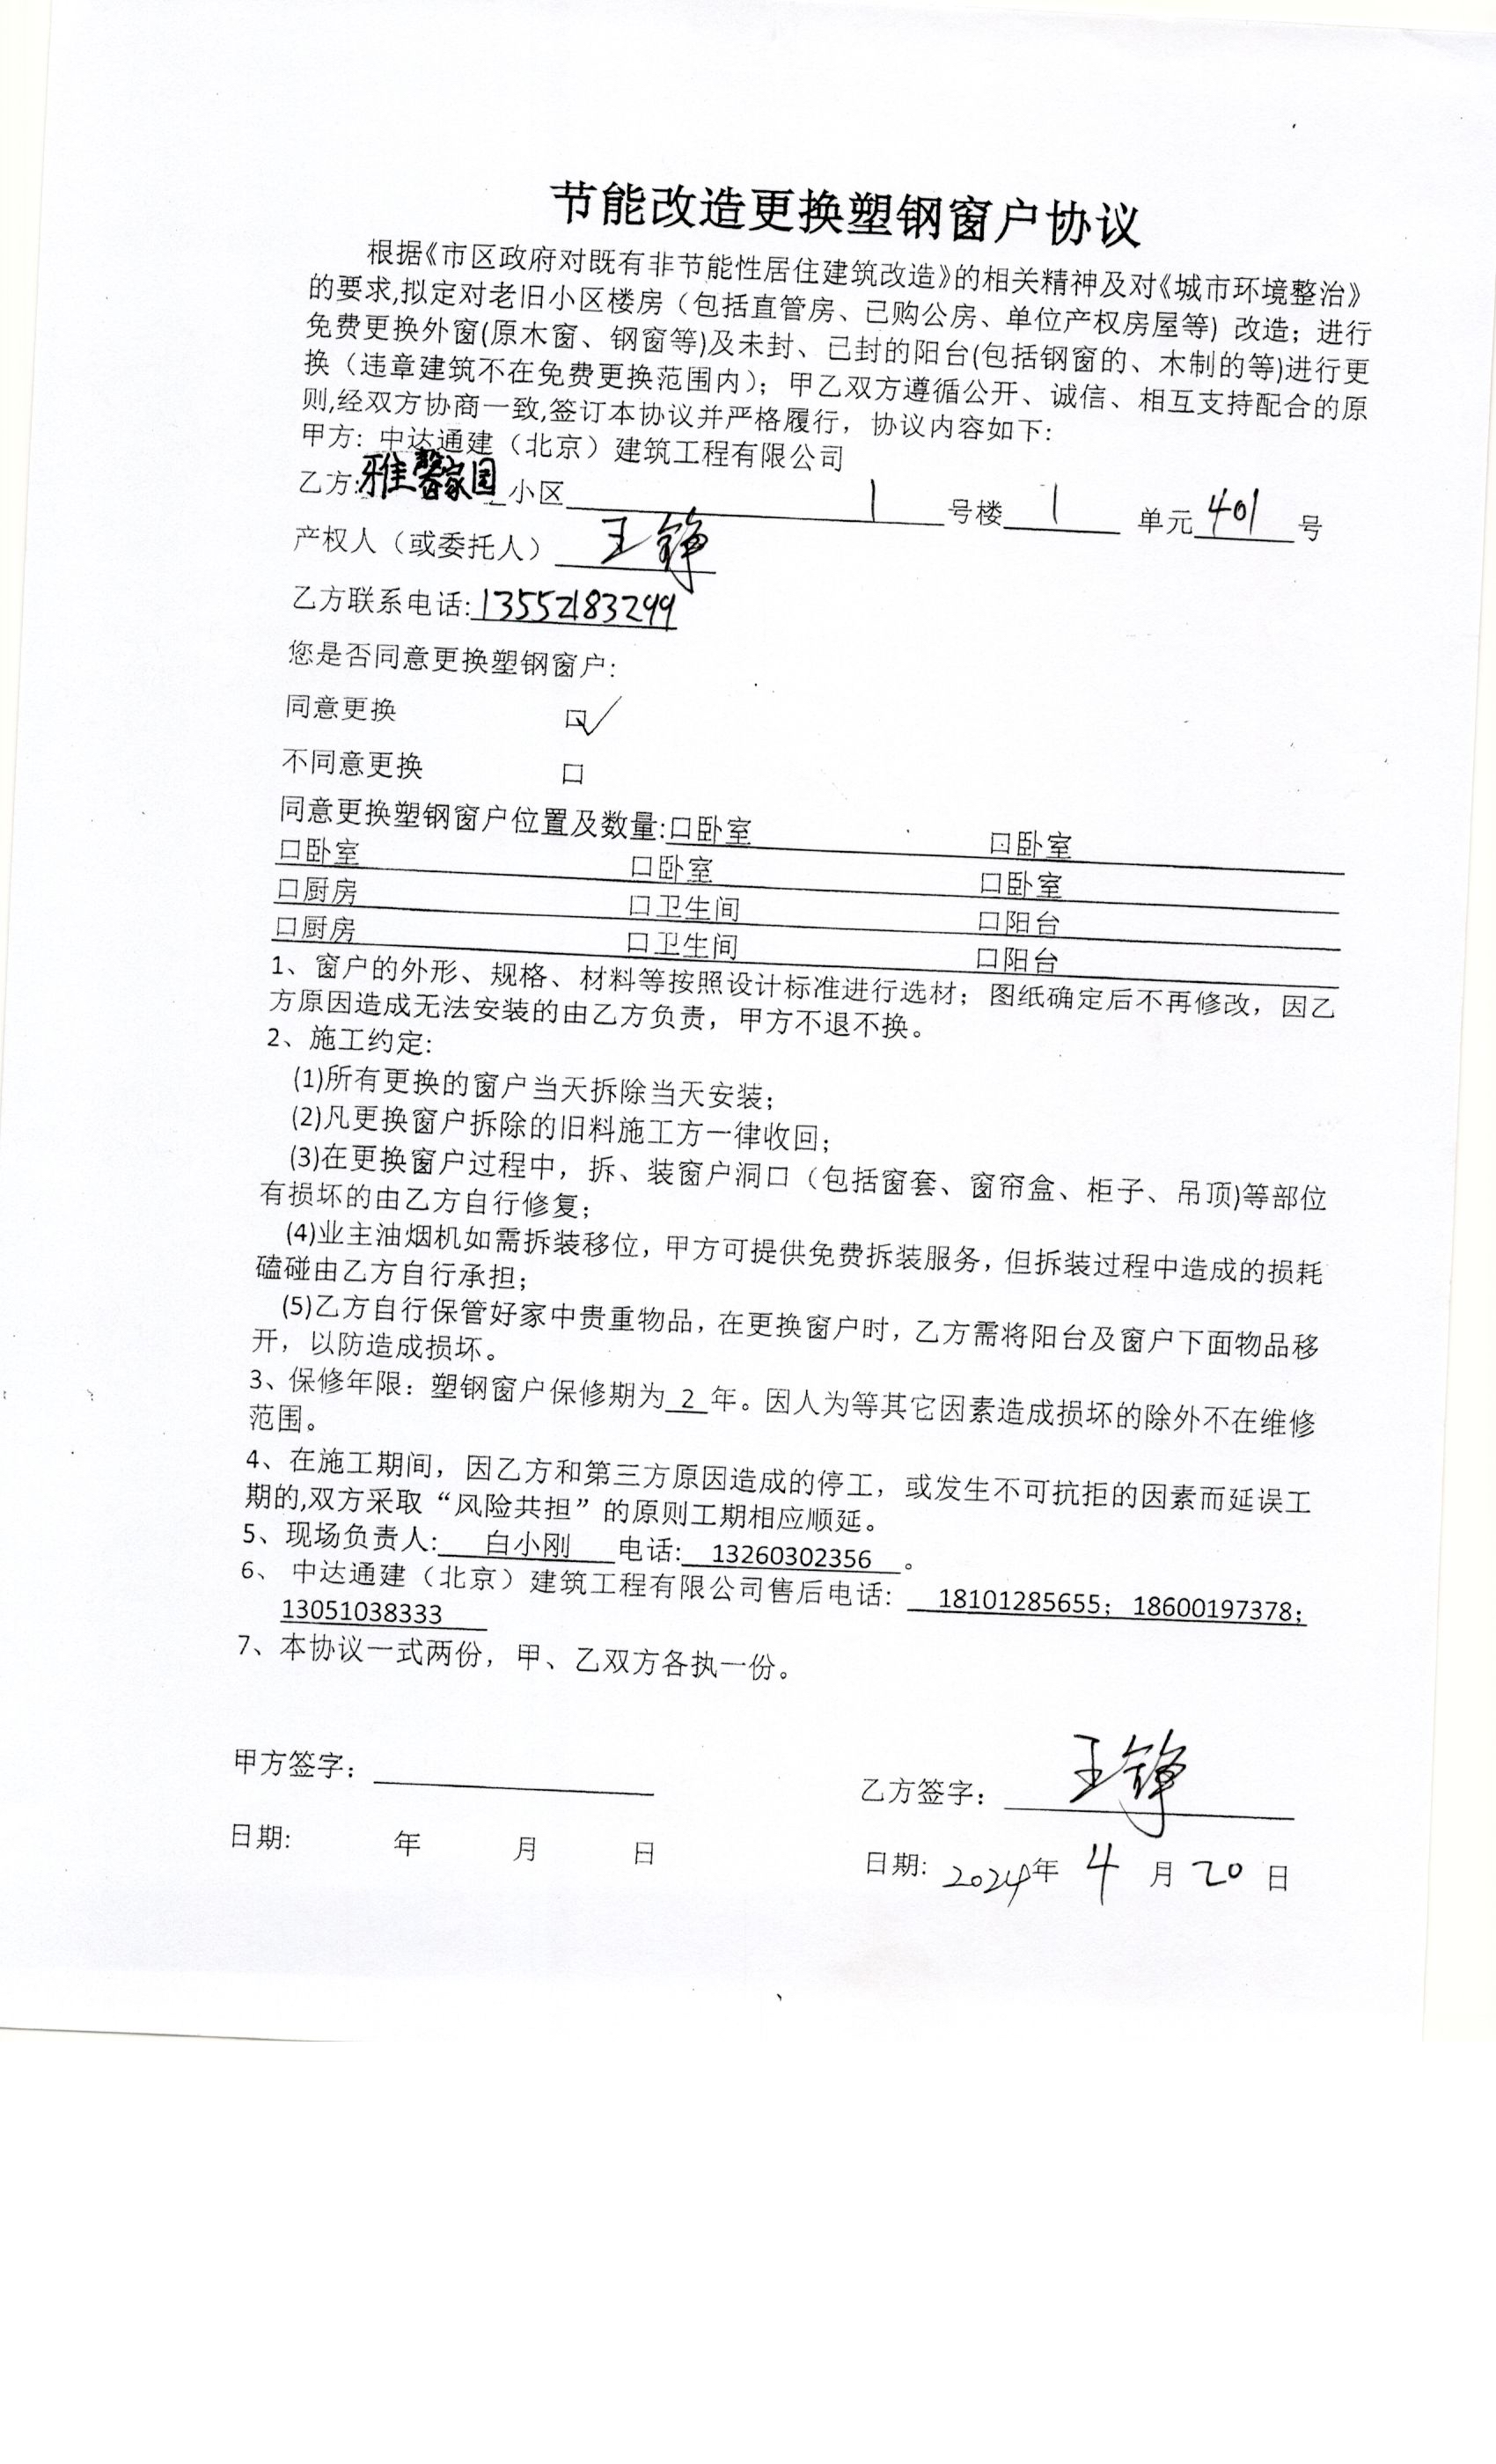 节能改造更换塑钢窗户协议
根据《市区政府对既有非节能性居住建筑改造》的相关精神及对《城市环境整治》
的要求,拟定对老旧小区楼房（包括直管房、已购公房、单位产权房屋等）改造；进行
免费更换外窗(原木窗、钢窗等)及未封、已封的阳台(包括钢窗的、木制的等)进行更
换（违章建筑不在免费更换范围内）；甲乙双方遵循公开、诚信、相互支持配合的原
则,经双方协商一致,签订本协议并严格履行，协议内容如下:
甲方: 中达通建（北京）建筑工程有限公司
乙方:雅馨家园 小区 1 号楼 1 单元 401 号
产权人（或委托人） 王铮
乙方联系电话:13552183299
您是否同意更换塑钢窗户:
同意更换 口✓
不同意更换 口
同意更换塑钢窗户位置及数量:口卧室 口卧室
口卧室 口卧室 口卧室
口厨房 口卫生间 口阳台
口厨房 口卫生间 口阳台
1、窗户的外形、规格、材料等按照设计标准进行选材；图纸确定后不再修改，因乙
方原因造成无法安装的由乙方负责，甲方不退不换。
2、施工约定:
(1)所有更换的窗户当天拆除当天安装；
(2)凡更换窗户拆除的旧料施工方一律收回；
(3)在更换窗户过程中，拆、装窗户洞口（包括窗套、窗帘盒、柜子、吊顶)等部位
有损坏的由乙方自行修复；
(4)业主油烟机如需拆装移位，甲方可提供免费拆装服务，但拆装过程中造成的损耗
磕碰由乙方自行承担；
(5)乙方自行保管好家中贵重物品，在更换窗户时，乙方需将阳台及窗户下面物品移
开，以防造成损坏。
3、保修年限：塑钢窗户保修期为 2 年。因人为等其它因素造成损坏的除外不在维修
范围。
4、在施工期间，因乙方和第三方原因造成的停工，或发生不可抗拒的因素而延误工
期的,双方采取“风险共担”的原则工期相应顺延。
5、现场负责人: 白小刚 电话: 13260302356 。
6、 中达通建（北京）建筑工程有限公司售后电话: 18101285655；18600197378；
13051038333
7、本协议一式两份，甲、乙双方各执一份。
甲方签字： 乙方签字： 王铮
日期: 年 月 日 日期: 2024年 4 月 20 日